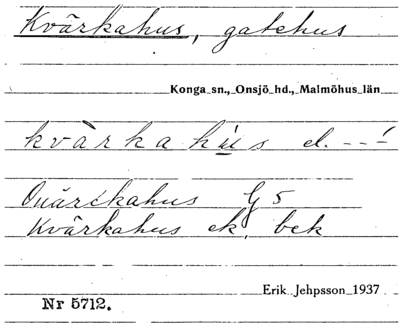 Kvärkahus, gatehus
Konga sn., Onsjö hd., Malmöhus län
kvàrkahús el. - - ́
Quärckahus G5
Kvärkahus ek, bek
Erik Jehpsson 1937
Nr 5712.